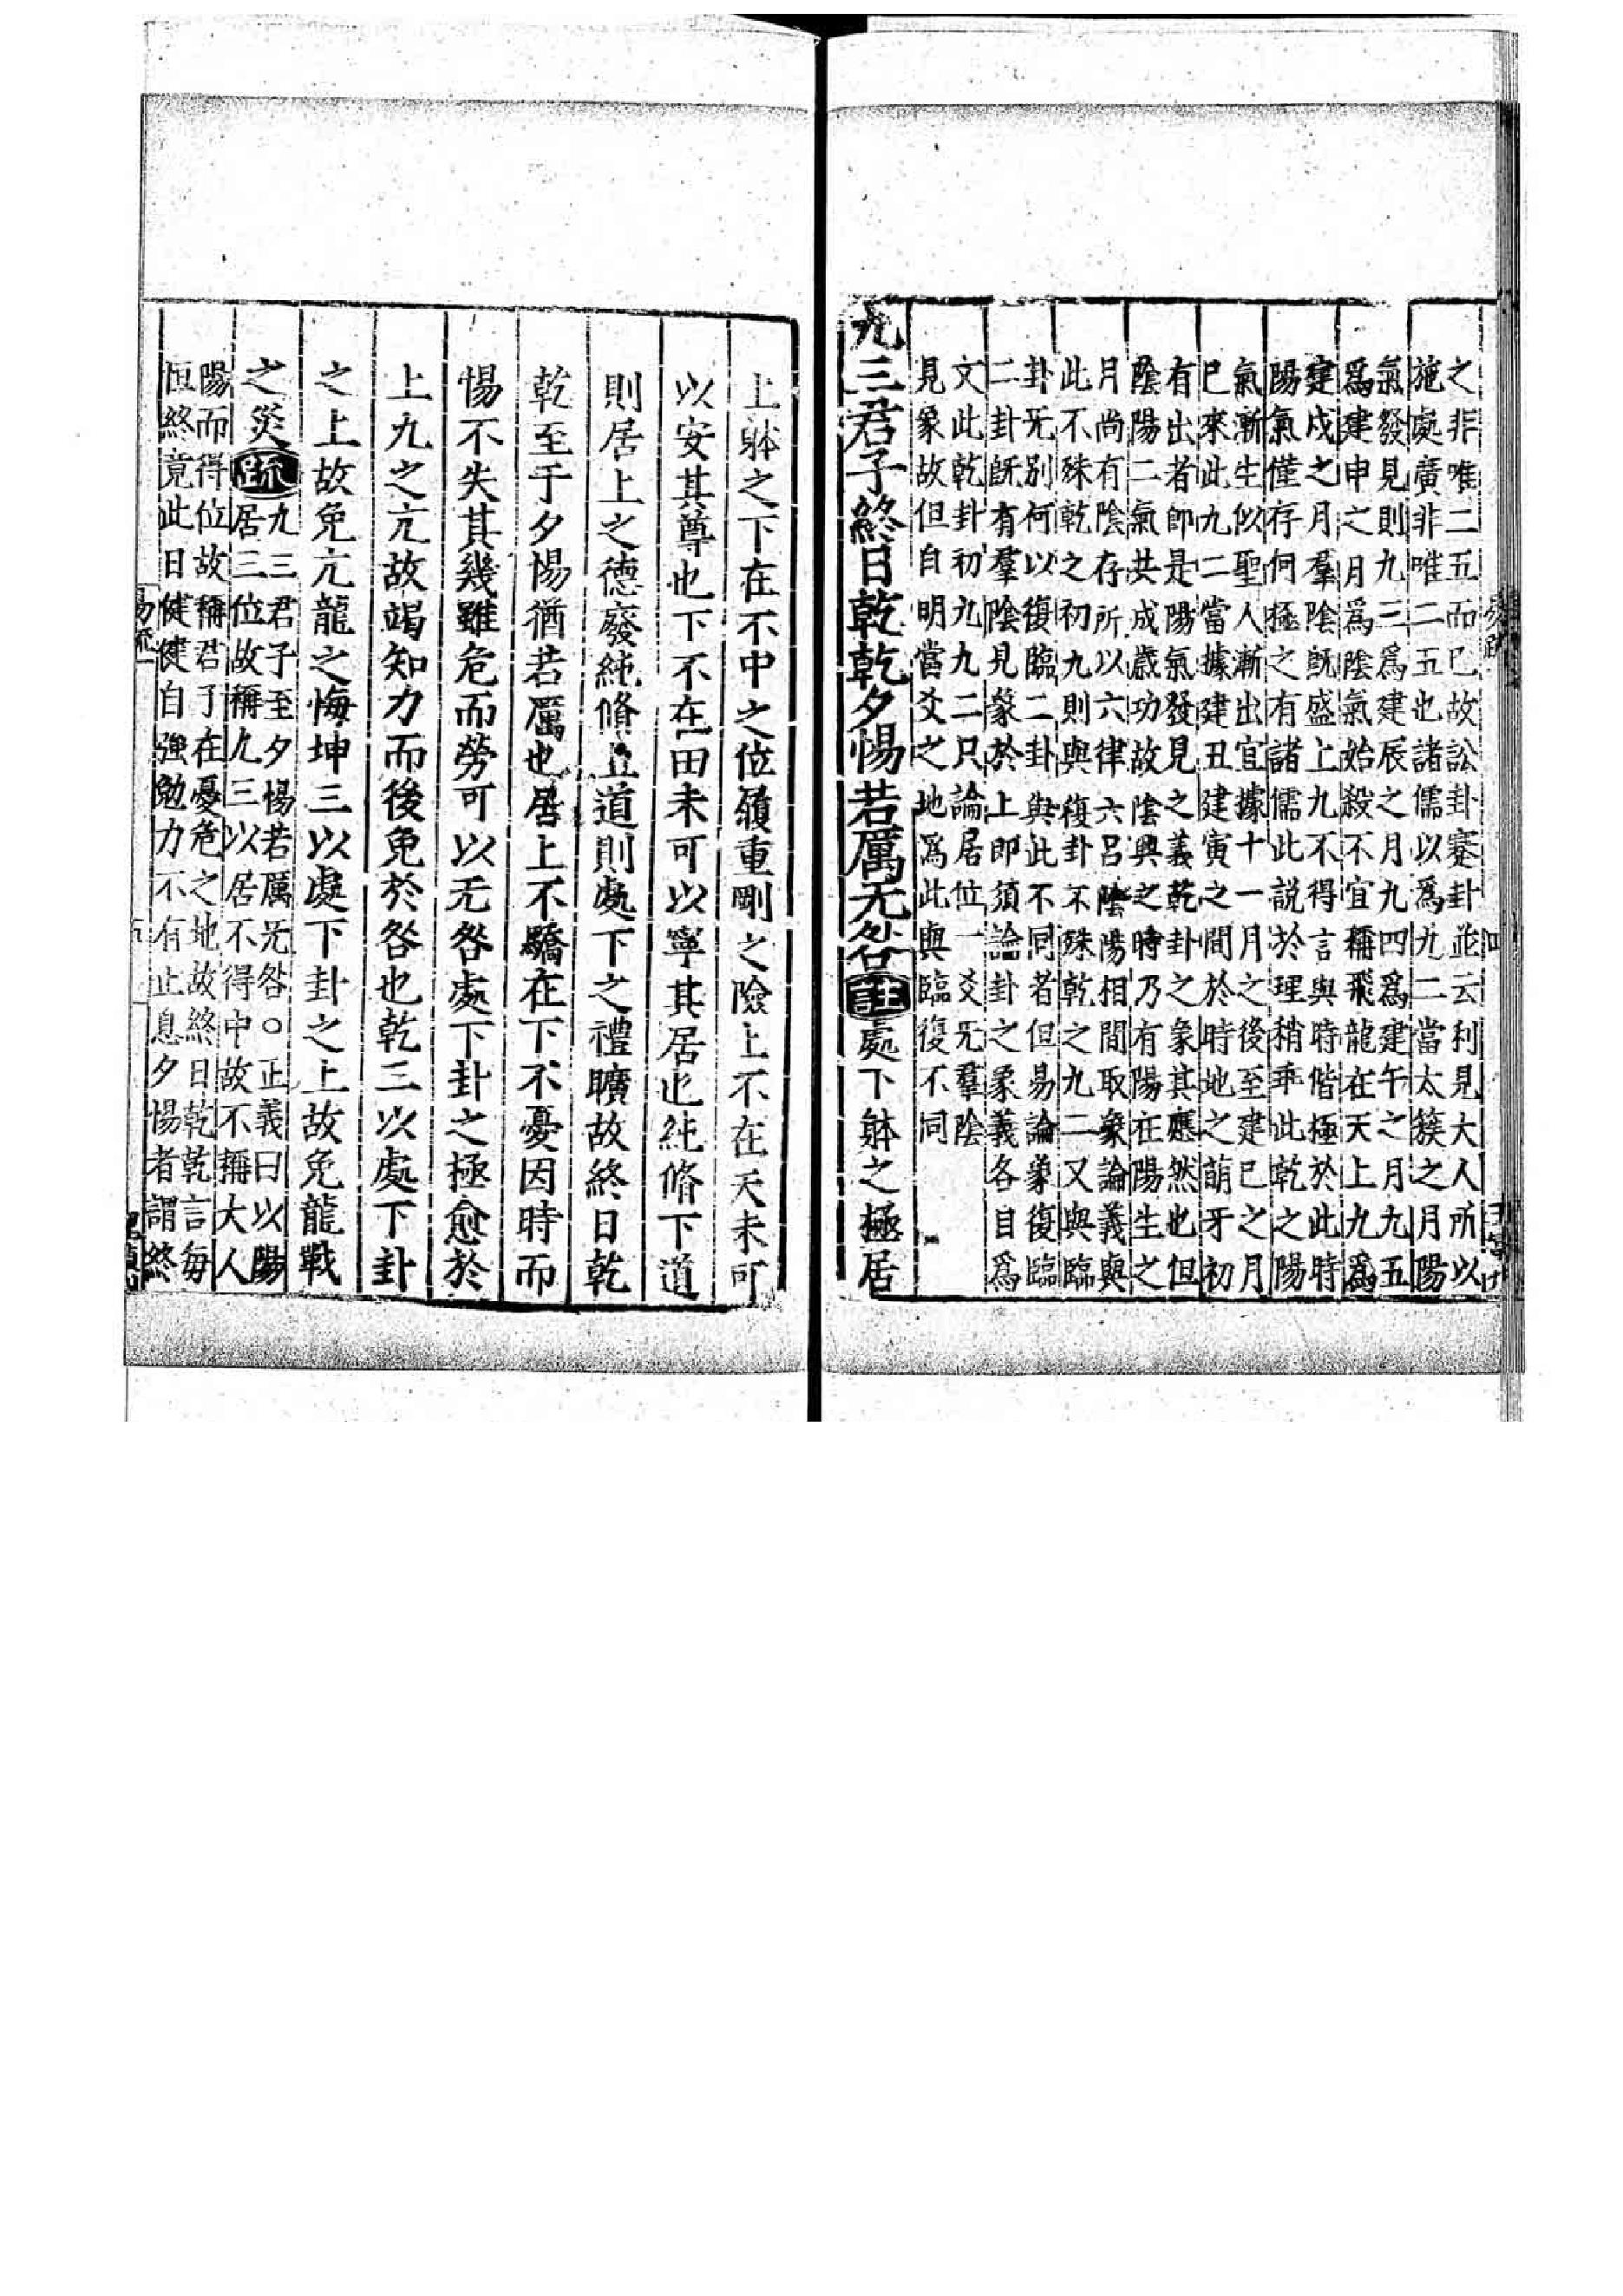 之非唯二五而已故訟卦蹇卦並云利見大人所以
施處廣非唯二五也諸儒以爲九二當太簇之月陽
氣發見則九三爲建辰之月九四爲建午之月九五
爲建申之月爲陰氣始殺不宜稱飛龍在天上九爲
建戌之月羣陰旣盛上九不得言與時偕極於此時
陽氣僅存何極之有諸儒此說於理稍乖此乾之陽
氣漸生似聖人漸出宜據十一月之後至建巳之月
已來此九二當據建丑建寅之間於時地之萌牙初
有出者即是陽氣發見之義乾卦之象其應然也但
陰陽二氣共成歲功故陰興之時乃有陽在陽生之
月尚有陰存所以六律六呂陰陽相間取象論義與
此不殊乾之初九則與復卦不殊乾之九二又與臨
卦无別何以復臨二卦與此不同者但易論象復臨
二卦旣有羣陰見象於上即須論卦之象義各自爲
文此乾卦初九九二只論居位一爻无羣陰
見象故但自明當爻之地爲此與臨復不同
九三君子終日乾乾夕惕若厲无咎註處下躰之極居
上躰之下在不中之位履重剛之險上不在天未可
以安其尊也下不在田未可以寧其居也純脩下道
則居上之德廢純脩上道則處下之禮曠故終日乾
乾至于夕惕猶若厲也居上不驕在下不憂因時而
惕不失其幾雖危而勞可以无咎處下卦之極愈於
上九之亢故竭知力而後免於咎也乾三以處下卦
之上故免亢龍之悔坤三以處下卦之上故免龍戰
之災疏九三君子至夕惕若厲无咎○正義曰以陽
居三位故稱九三以居不得中故不稱大人
陽而得位故稱君子在憂危之地故終日乾乾言每
恒終竟此日健健自強勉力不有止息夕惕者謂終
易疏一